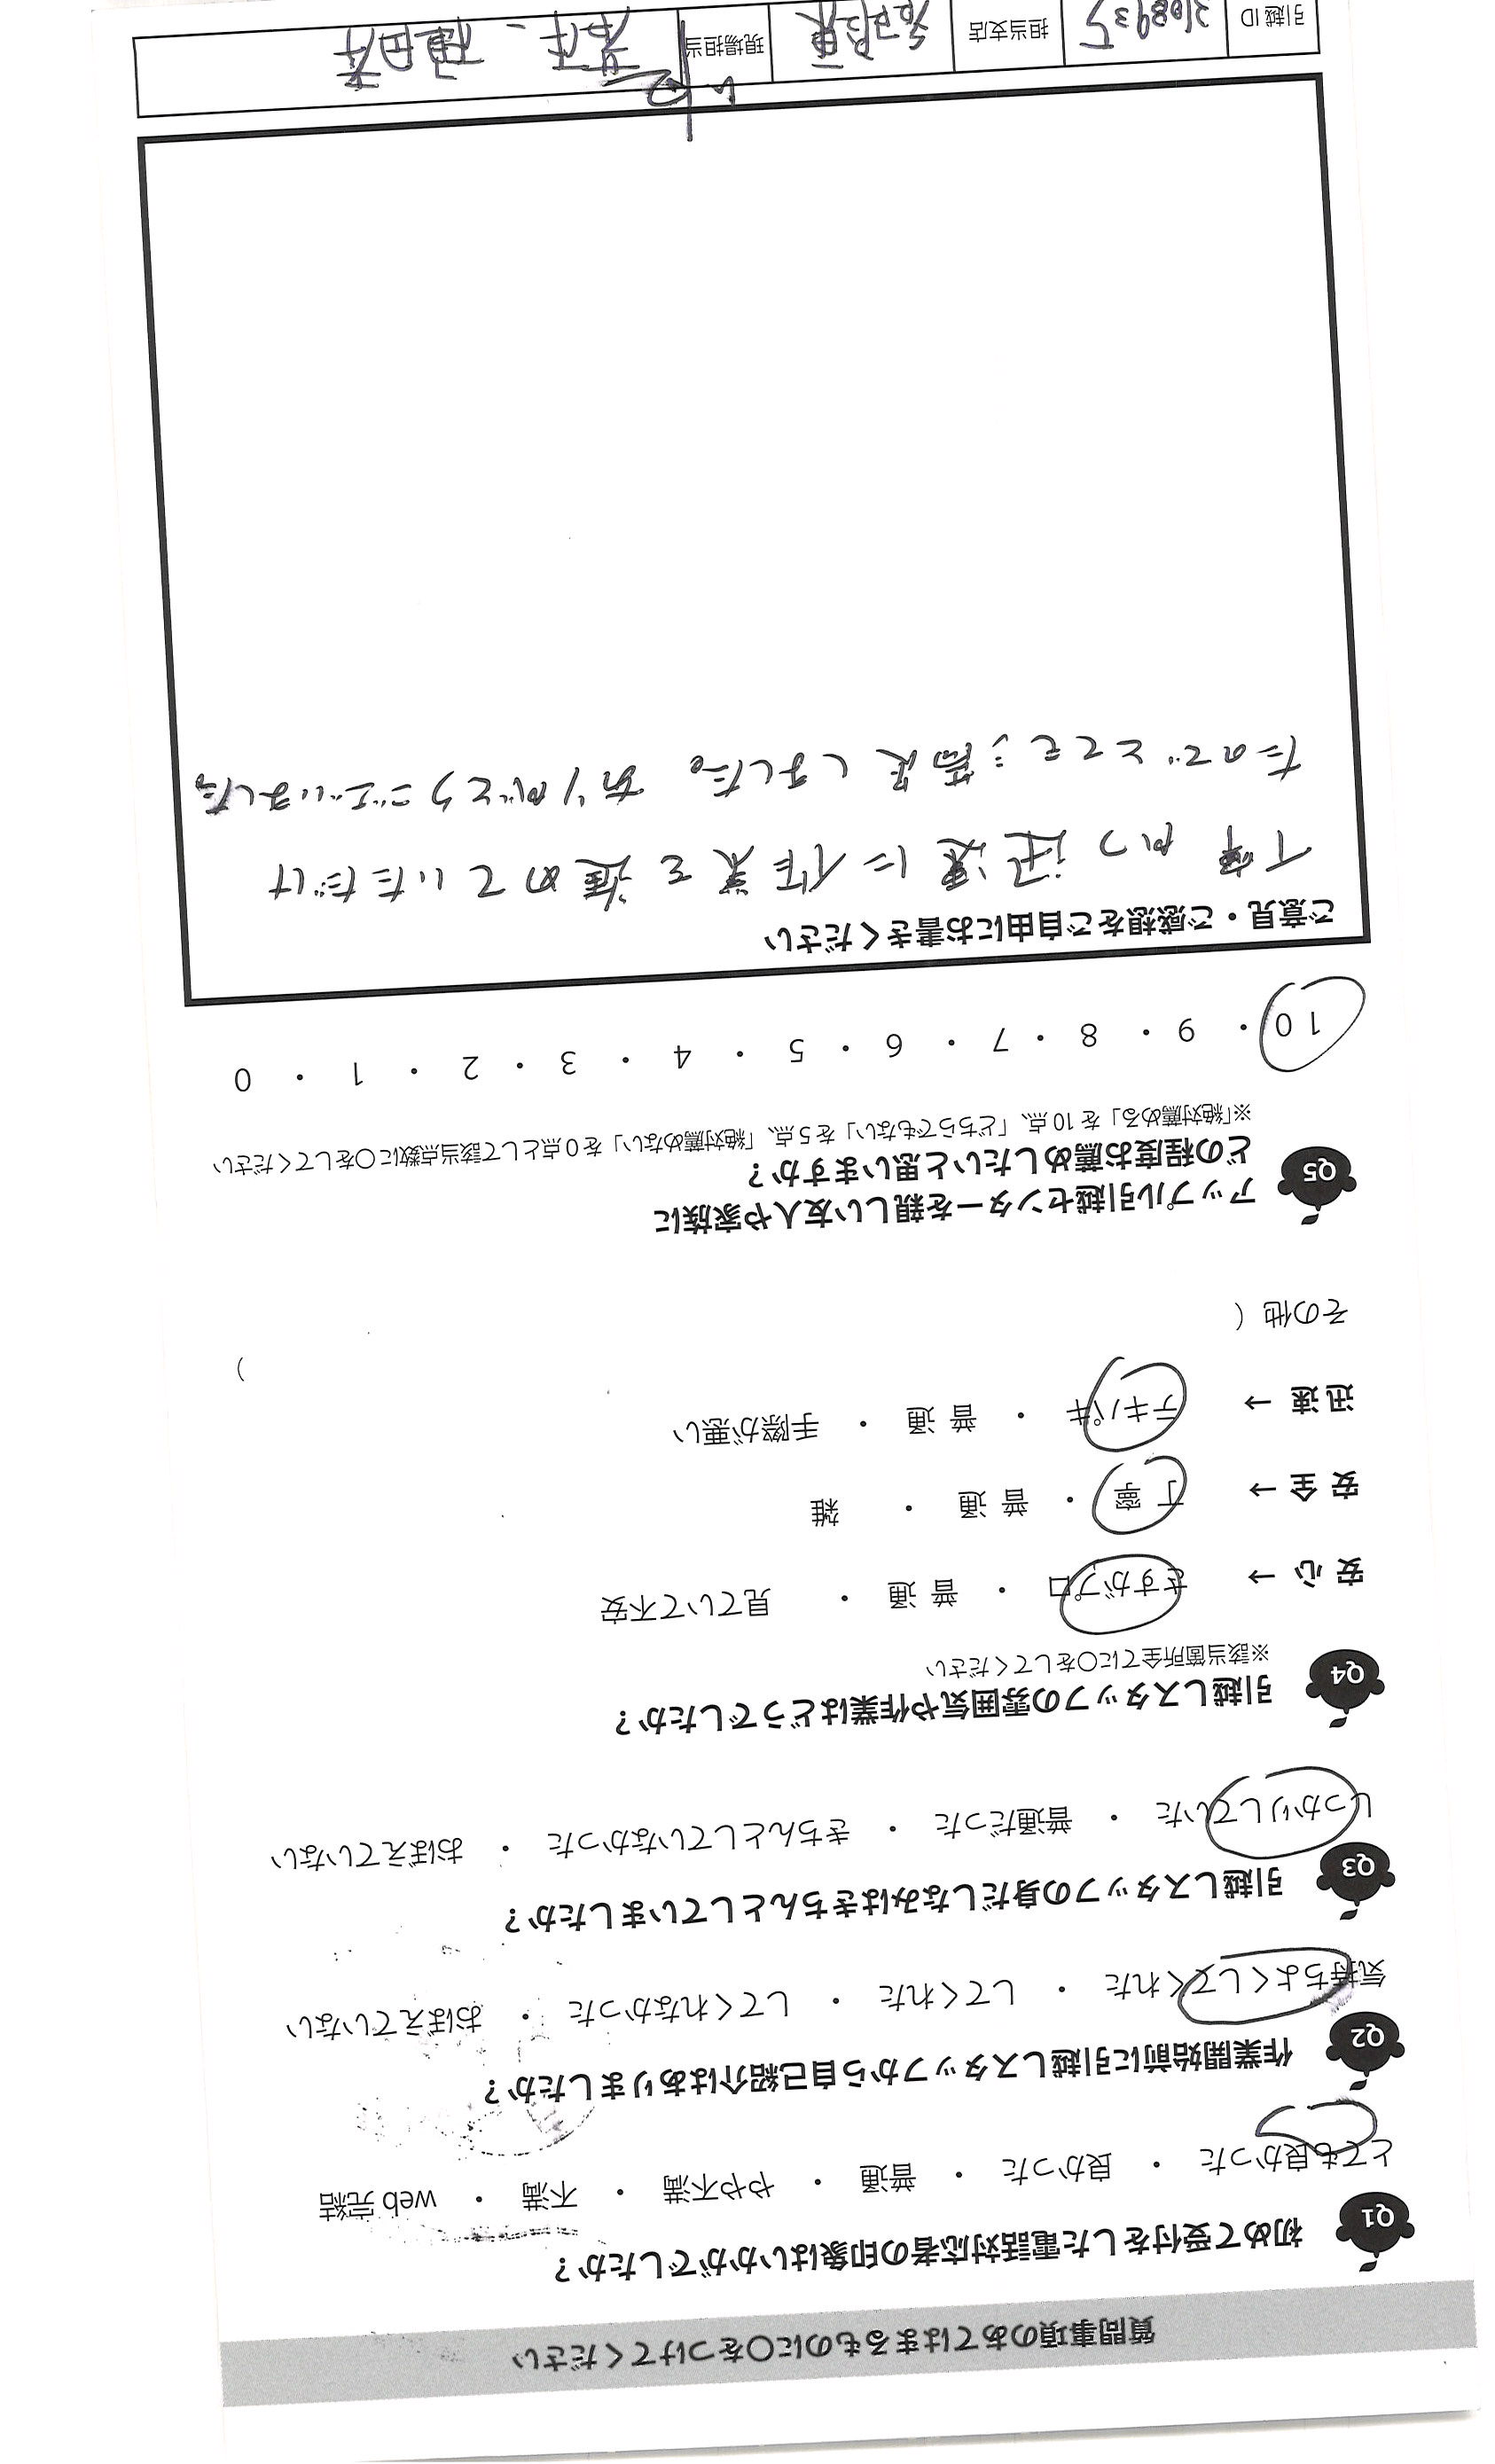 質問事項のあてはまるものに○をつけてください
Q1 初めて受付をした電話対応者の印象はいかがでしたか?
とても良かった ・ 良かった ・ 普通 ・ やや不満 ・ 不満 ・ web完結
Q2 作業開始前に引越しスタッフから自己紹介はありましたか?
気持ちよくしてくれた ・ してくれた ・ してくれなかった ・ おぼえていない
Q3 引越しスタッフの身だしなみはきちんとしていましたか?
しっかりしていた ・ 普通だった ・ きちんとしていなかった ・ おぼえていない
Q4 引越しスタッフの雰囲気や作業はどうでしたか?
※該当箇所全てに○をしてください
安心→ さすがプロ ・ 普通 ・ 見ていて不安
安全→ 丁寧 ・ 普通 ・ 雑
迅速→ テキパキ ・ 普通 ・ 手際が悪い
その他( )
Q5 アップル引越センターを親しい友人や家族に
どの程度お薦めしたいと思いますか?
※「絶対薦める」を10点、「どちらでもない」を5点、「絶対薦めない」を0点として該当点数に○をしてください
10 ・ 9 ・ 8 ・ 7 ・ 6 ・ 5 ・ 4 ・ 3 ・ 2 ・ 1 ・ 0
ご意見・ご感想をご自由にお書きください
丁寧かつ迅速に作業を進めていただけ
たのでとても満足しました。ありがとうございました。
引越ID 担当支店 現場担当